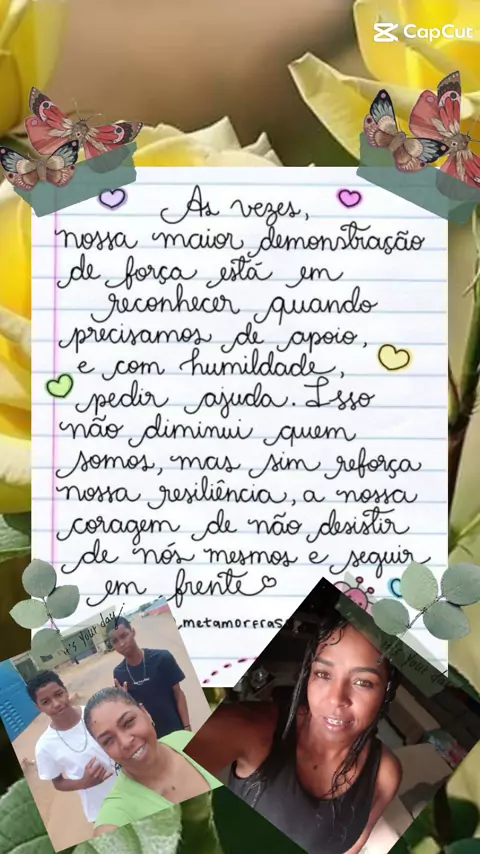 CapCut
As vezes,
nossa maior demonstração
de força está em
reconhecer quando
precisamos de apoio,
e com humildade,
pedir ajuda. Isso
não diminui quem
somos, mas sim reforça
nossa resiliência, a nossa
coragem de não desistir
de nós mesmos e seguir
em frente
it's your day
it's your day